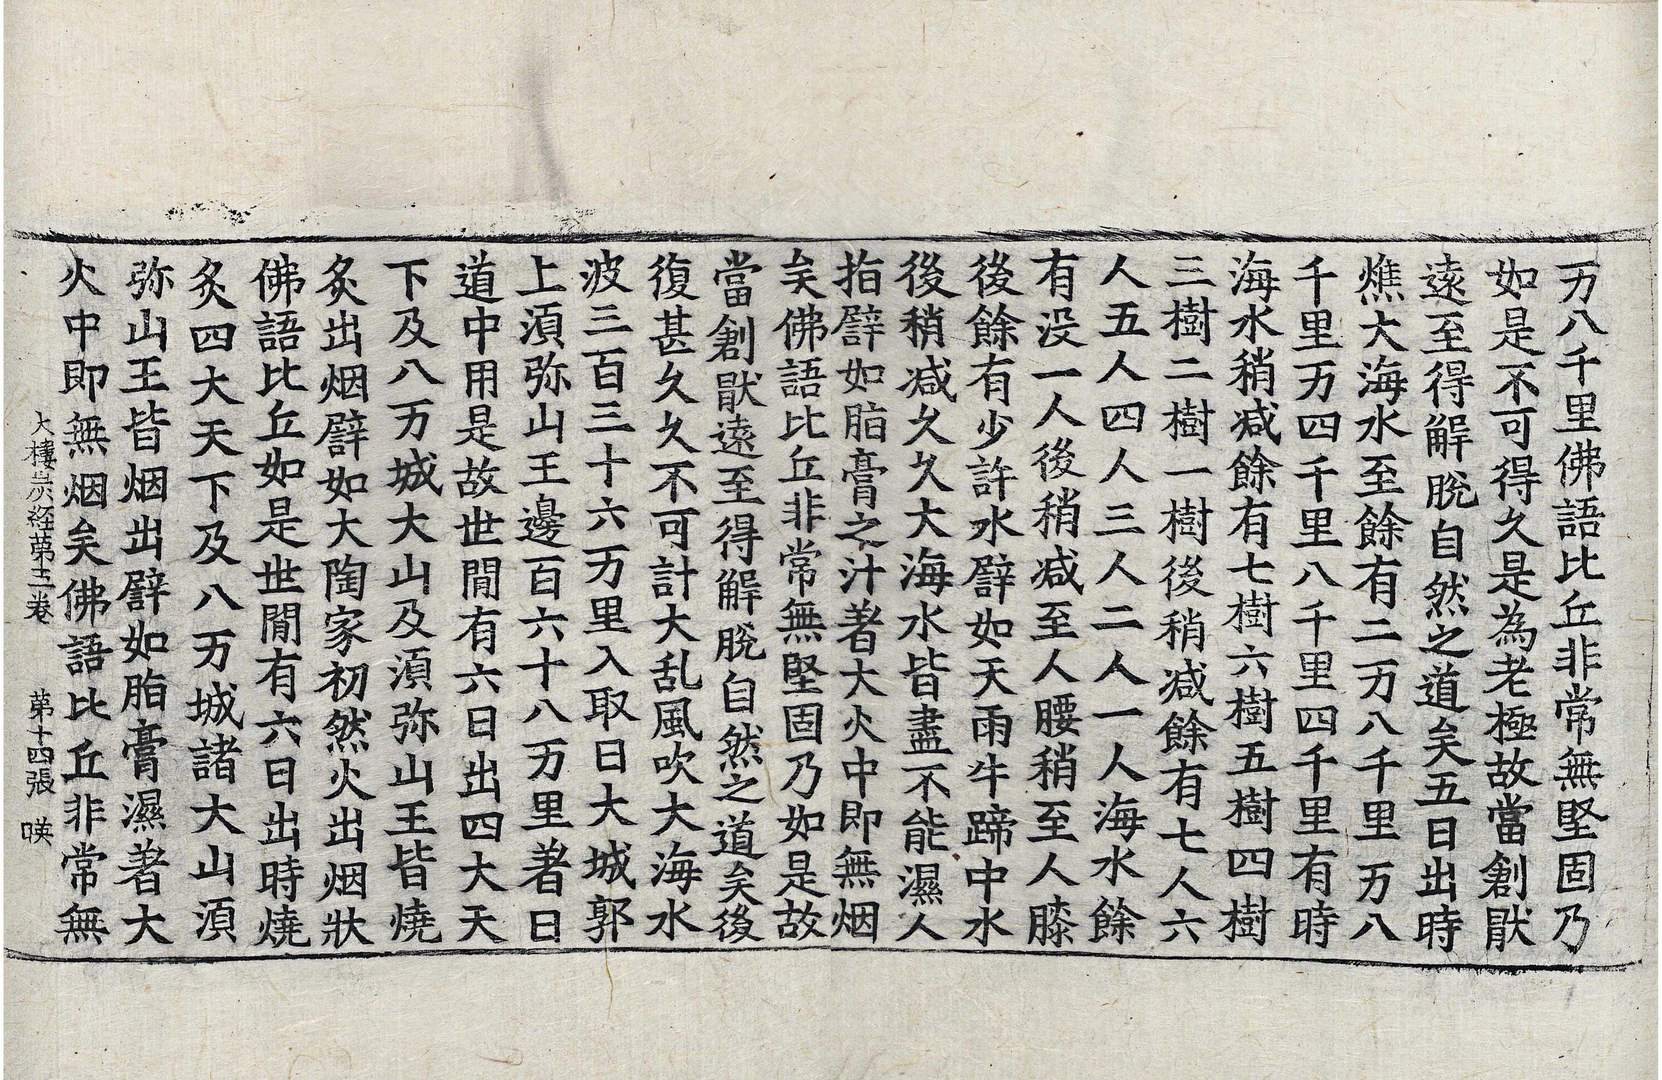 万八千里佛語比丘非常無堅固乃
如是不可得久是為老極故當創猒
遠至得解脫自然之道矣五日出時
燋大海水至餘有二万八千里万八
千里万四千里八千里四千里有時
海水稍減餘有七樹六樹五樹四樹
三樹二樹一樹後稍減餘有七人六
人五人四人三人二人一人海水餘
有没一人後稍减至人腰稍至人膝
後餘有少許水譬如天雨牛蹄中水
後稍减久久大海水皆盡不能濕人
指譬如脂膏之汁著大火中即無烟
矣佛語比丘非常無堅固乃如是故
當創猒遠至得解脫自然之道矣後
復甚久久不可計大乱風吹大海水
波三百三十六万里入取日大城郭
上須弥山王邊百六十八万里著日
道中用是故世間有六日出四大天
下及八万城大山及須弥山王皆燒
炙出烟譬如大陶家初然火出烟狀
佛語比丘如是世間有六日出時燒
炙四大天下及八万城諸大山須
弥山王皆烟出譬如脂膏濕著大
火中即無烟矣佛語比丘非常無
大樓炭経第三卷 第十四張 㬢